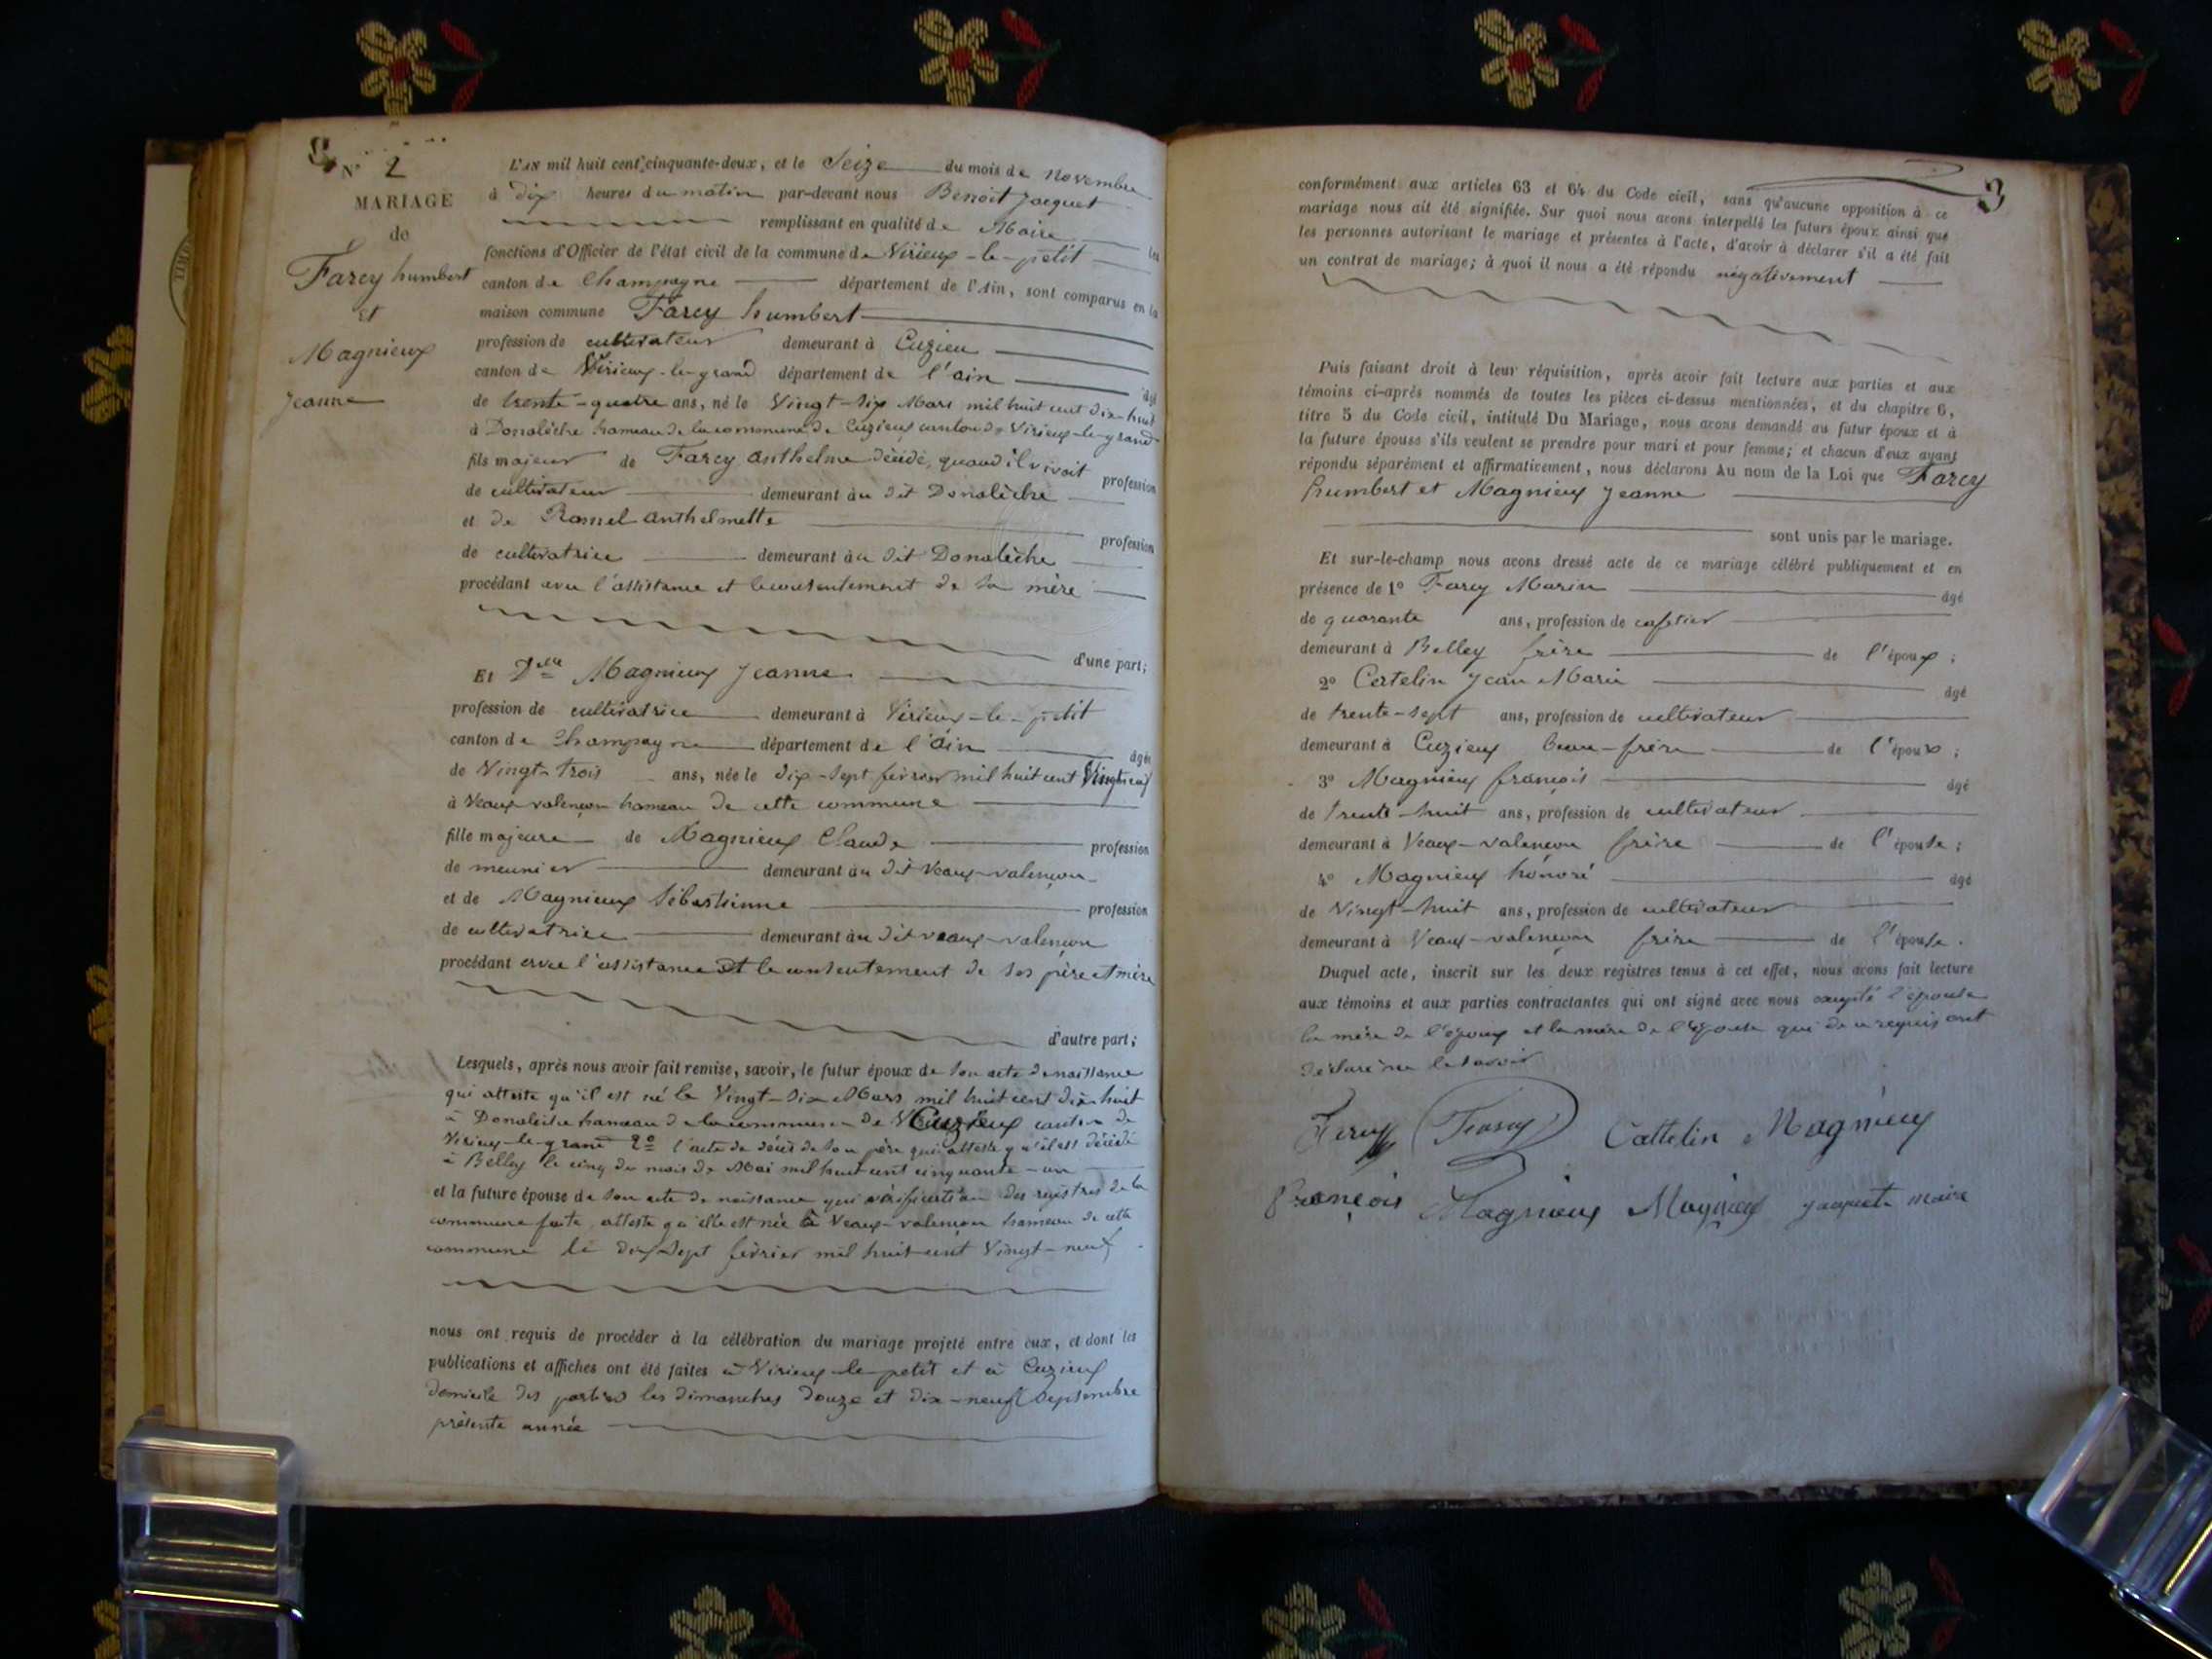 N° 2
MARIAGE
de
Farcy humbert
et
Magnieux
Jeanne
L'AN mil huit cent cinquante-deux, et le Seize du mois de novembre
à dix heures du matin par-devant nous Benoit Jacquet
remplissant en qualité de Maire les
fonctions d'Officier de l'état civil de la commune de Virieux-le-petit
canton de Champagne département de l'Ain, sont comparus en la
maison commune Farcy humbert
profession de cultivateur demeurant à Cuzieu
canton de Virieux-le-grand département de l'ain âgé
de trente-quatre ans, né le Vingt-six Mars mil huit cent dix-huit
à Donalèche hameau de la commune de Cuzieux canton de Virieux-le-grand
fils majeur de Farcy Anthelme décédé, quand il vivait profession
de cultivateur demeurant au dit Donalèche
et de Ramel Anthelmette profession
de cultivatrice demeurant au dit Donalèche
procédant avec l'assistance et le consentement de sa mère
d'une part;
Et Delle Magnieux Jeanne
profession de cultivatrice demeurant à Virieux-le-petit
canton de Champagne département de l'ain âgée
de Vingt-trois ans, née le dix-sept février mil huit cent Vingt neuf
à Veaux-valençon hameau de cette commune
fille majeure de Magnieux Claude profession
de meunier demeurant au dit Veaux-valençon
et de Magnieux Sébastienne profession
de cultivatrice demeurant au dit veaux-valençon
procédant avec l'assistance et le consentement de ses père et mère
d'autre part;
Lesquels, après nous avoir fait remise, savoir, le futur époux de son acte de naissance
qui atteste qu'il est né le Vingt-six Mars mil huit cent dix huit
à Donalèche hameau de la commune de Cuzieux canton de
Virieux-le-grand 2° l'acte de décès de son père qui atteste qu'il est décédé
à Belley le cinq du mois de Mai mil huit cent cinquante-un
et la future épouse de son acte de naissance qui vérification des registres de la
commune faite, atteste qu'elle est née à Veaux-valençon hameau de cette
commune le dix-sept février mil huit cent Vingt-neuf
nous ont requis de procéder à la célébration du mariage projeté entre eux, et dont les
publications et affiches ont été faites à Virieux-le-petit et à Cuzieux
domicile des parties les dimanches douze et dix-neuf septembre
présente année
3
conformément aux articles 63 et 64 du Code civil, sans qu'aucune opposition à ce
mariage nous ait été signifiée. Sur quoi nous avons interpellé les futurs époux ainsi que
les personnes autorisant le mariage et présentes à l'acte, d'avoir à déclarer s'il a été fait
un contrat de mariage; à quoi il nous a été répondu négativement
Puis faisant droit à leur réquisition, après avoir fait lecture aux parties et aux
témoins ci-après nommés de toutes les pièces ci-dessus mentionnées, et du chapitre 6,
titre 5 du Code civil, intitulé Du Mariage, nous avons demandé au futur époux et à
la future épouse s'ils veulent se prendre pour mari et pour femme; et chacun d'eux ayant
répondu séparément et affirmativement, nous déclarons Au nom de la Loi que Farcy
humbert et Magnieux Jeanne
sont unis par le mariage.
Et sur-le-champ nous avons dressé acte de ce mariage célébré publiquement et en
présence de 1° Farcy Marin âgé
de quarante ans, profession de cafetier
demeurant à Belley frère de l'époux;
2° Catelin Jean Marie âgé
de trente-sept ans, profession de cultivateur
demeurant à Cuzieux beau-frère de l'époux;
3° Magnieux françois âgé
de trente-huit ans, profession de cultivateur
demeurant à Veaux-valençon frère de l'épouse;
4° Magnieux honoré âgé
de Vingt-huit ans, profession de cultivateur
demeurant à Veaux-valençon frère de l'épouse.
Duquel acte, inscrit sur les deux registres tenus à cet effet, nous avons fait lecture
aux témoins et aux parties contractantes qui ont signé avec nous excepté l'épouse
la mère de l'époux et la mère de l'épouse qui de ce requis ont
déclaré ne le savoir
Farcy Cattelin Magnieux
François Magnieux Magnieux Jacquet maire